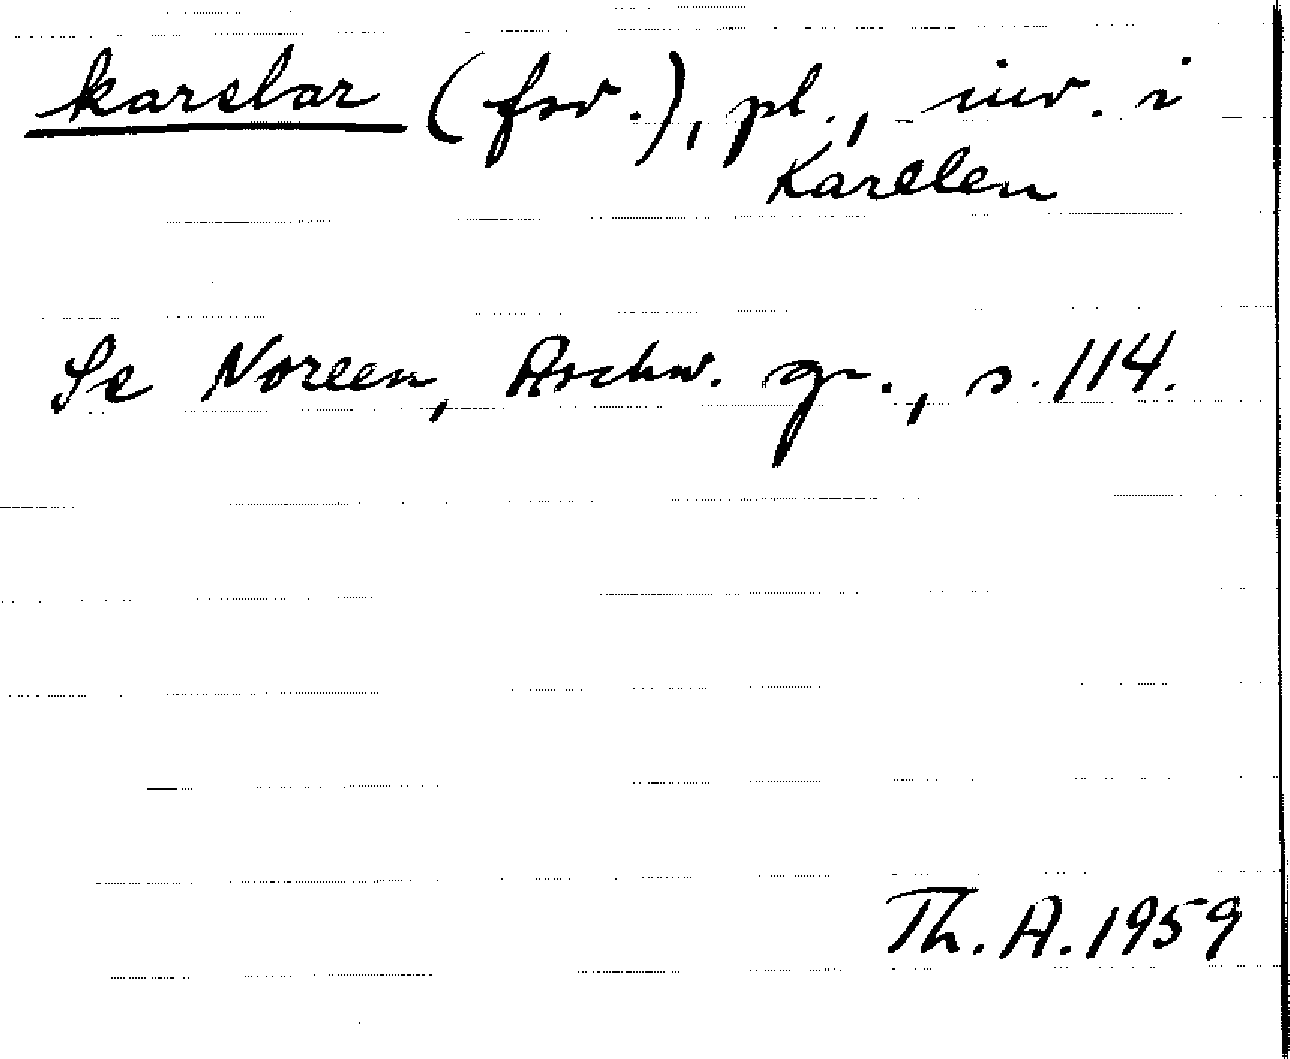 karelar (fsv.), pl., inv. i
Karelen
Se Noreen, Aschw. gr., s. 114.
Th. A. 1959